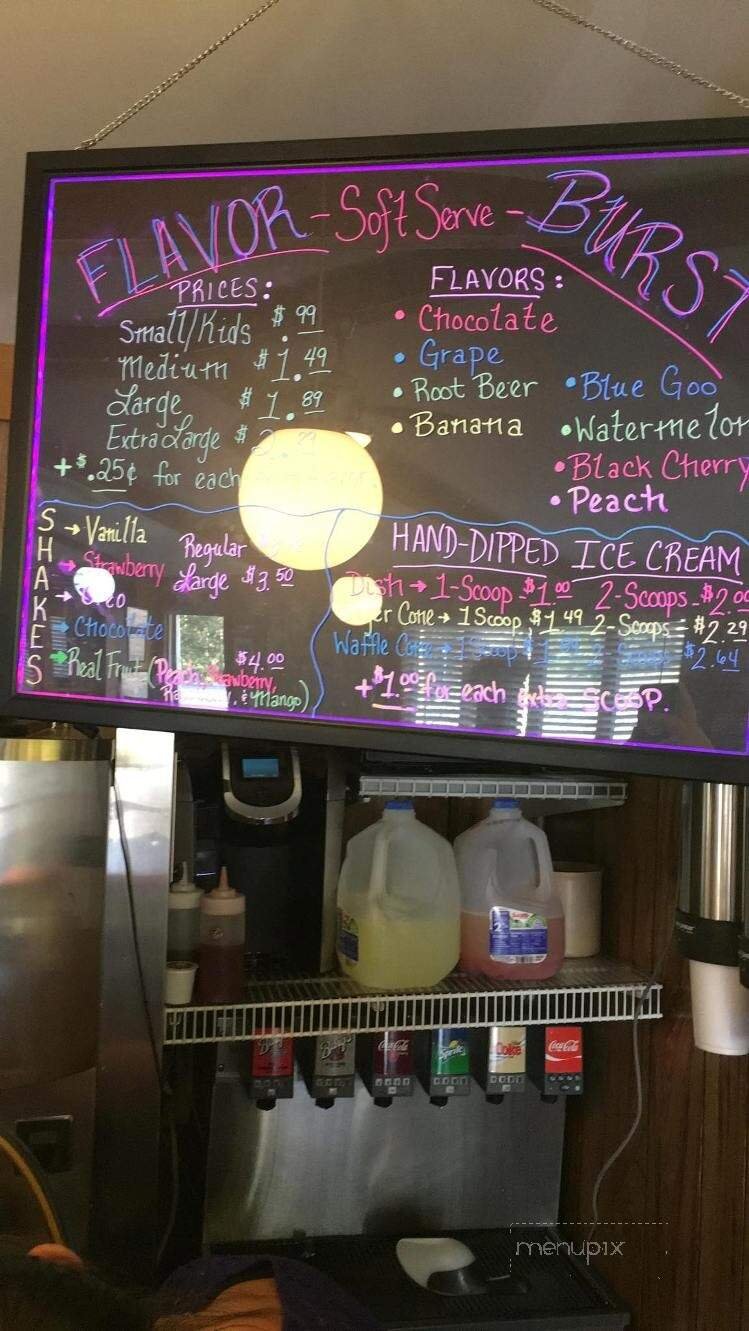 FLAVOR - Soft Serve - BURST
PRICES:
Small/Kids $.99
Medium $1.49
Large $1.89
Extra Large $
+ $.25¢ for each
FLAVORS:
• Chocolate
• Grape
• Root Beer
• Banana
• Blue Goo
• Watermelon
• Black Cherry
• Peach
SHAKES
→ Vanilla
→ Strawberry
→
→ Chocolate
→ Real Fruit (Peach, Strawberry,
& Mango)
$4.00
Regular
Large $3.50
HAND-DIPPED ICE CREAM
Dish → 1-Scoop $1.00 2-Scoops - $2.00
Cone → 1 Scoop $1.49 2-Scoops - $2.29
Waffle Cone → 1 Scoop $1. 2-Scoops $2.64
+ $1.00 for each extra SCOOP.
2%
Coca-Cola
Sprite
Coke
Coca-Cola
menupix